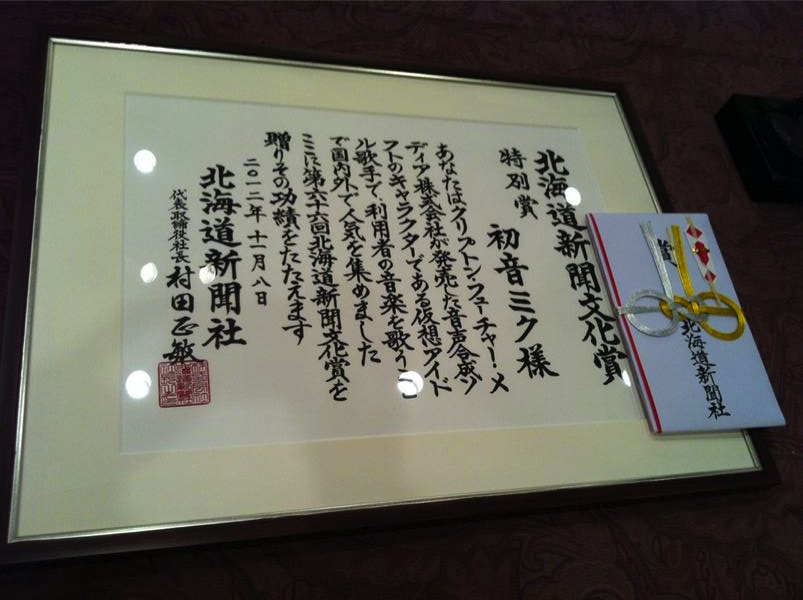 北海道新聞文化賞
特別賞
初音ミク様
あなたはクリプトン・フューチャー・メ
ディア株式会社が発売した音声合成ソ
フトのキャラクターである仮想アイド
ル歌手で、利用者の音楽を歌うこと
で国内外で人気を集めました
ここに第六十六回北海道新聞文化賞を
贈りその功績をたたえます
二〇一二年 十一月八日
北海道新聞社
代表取締役社長 村田正敏
賞
北海道新聞社